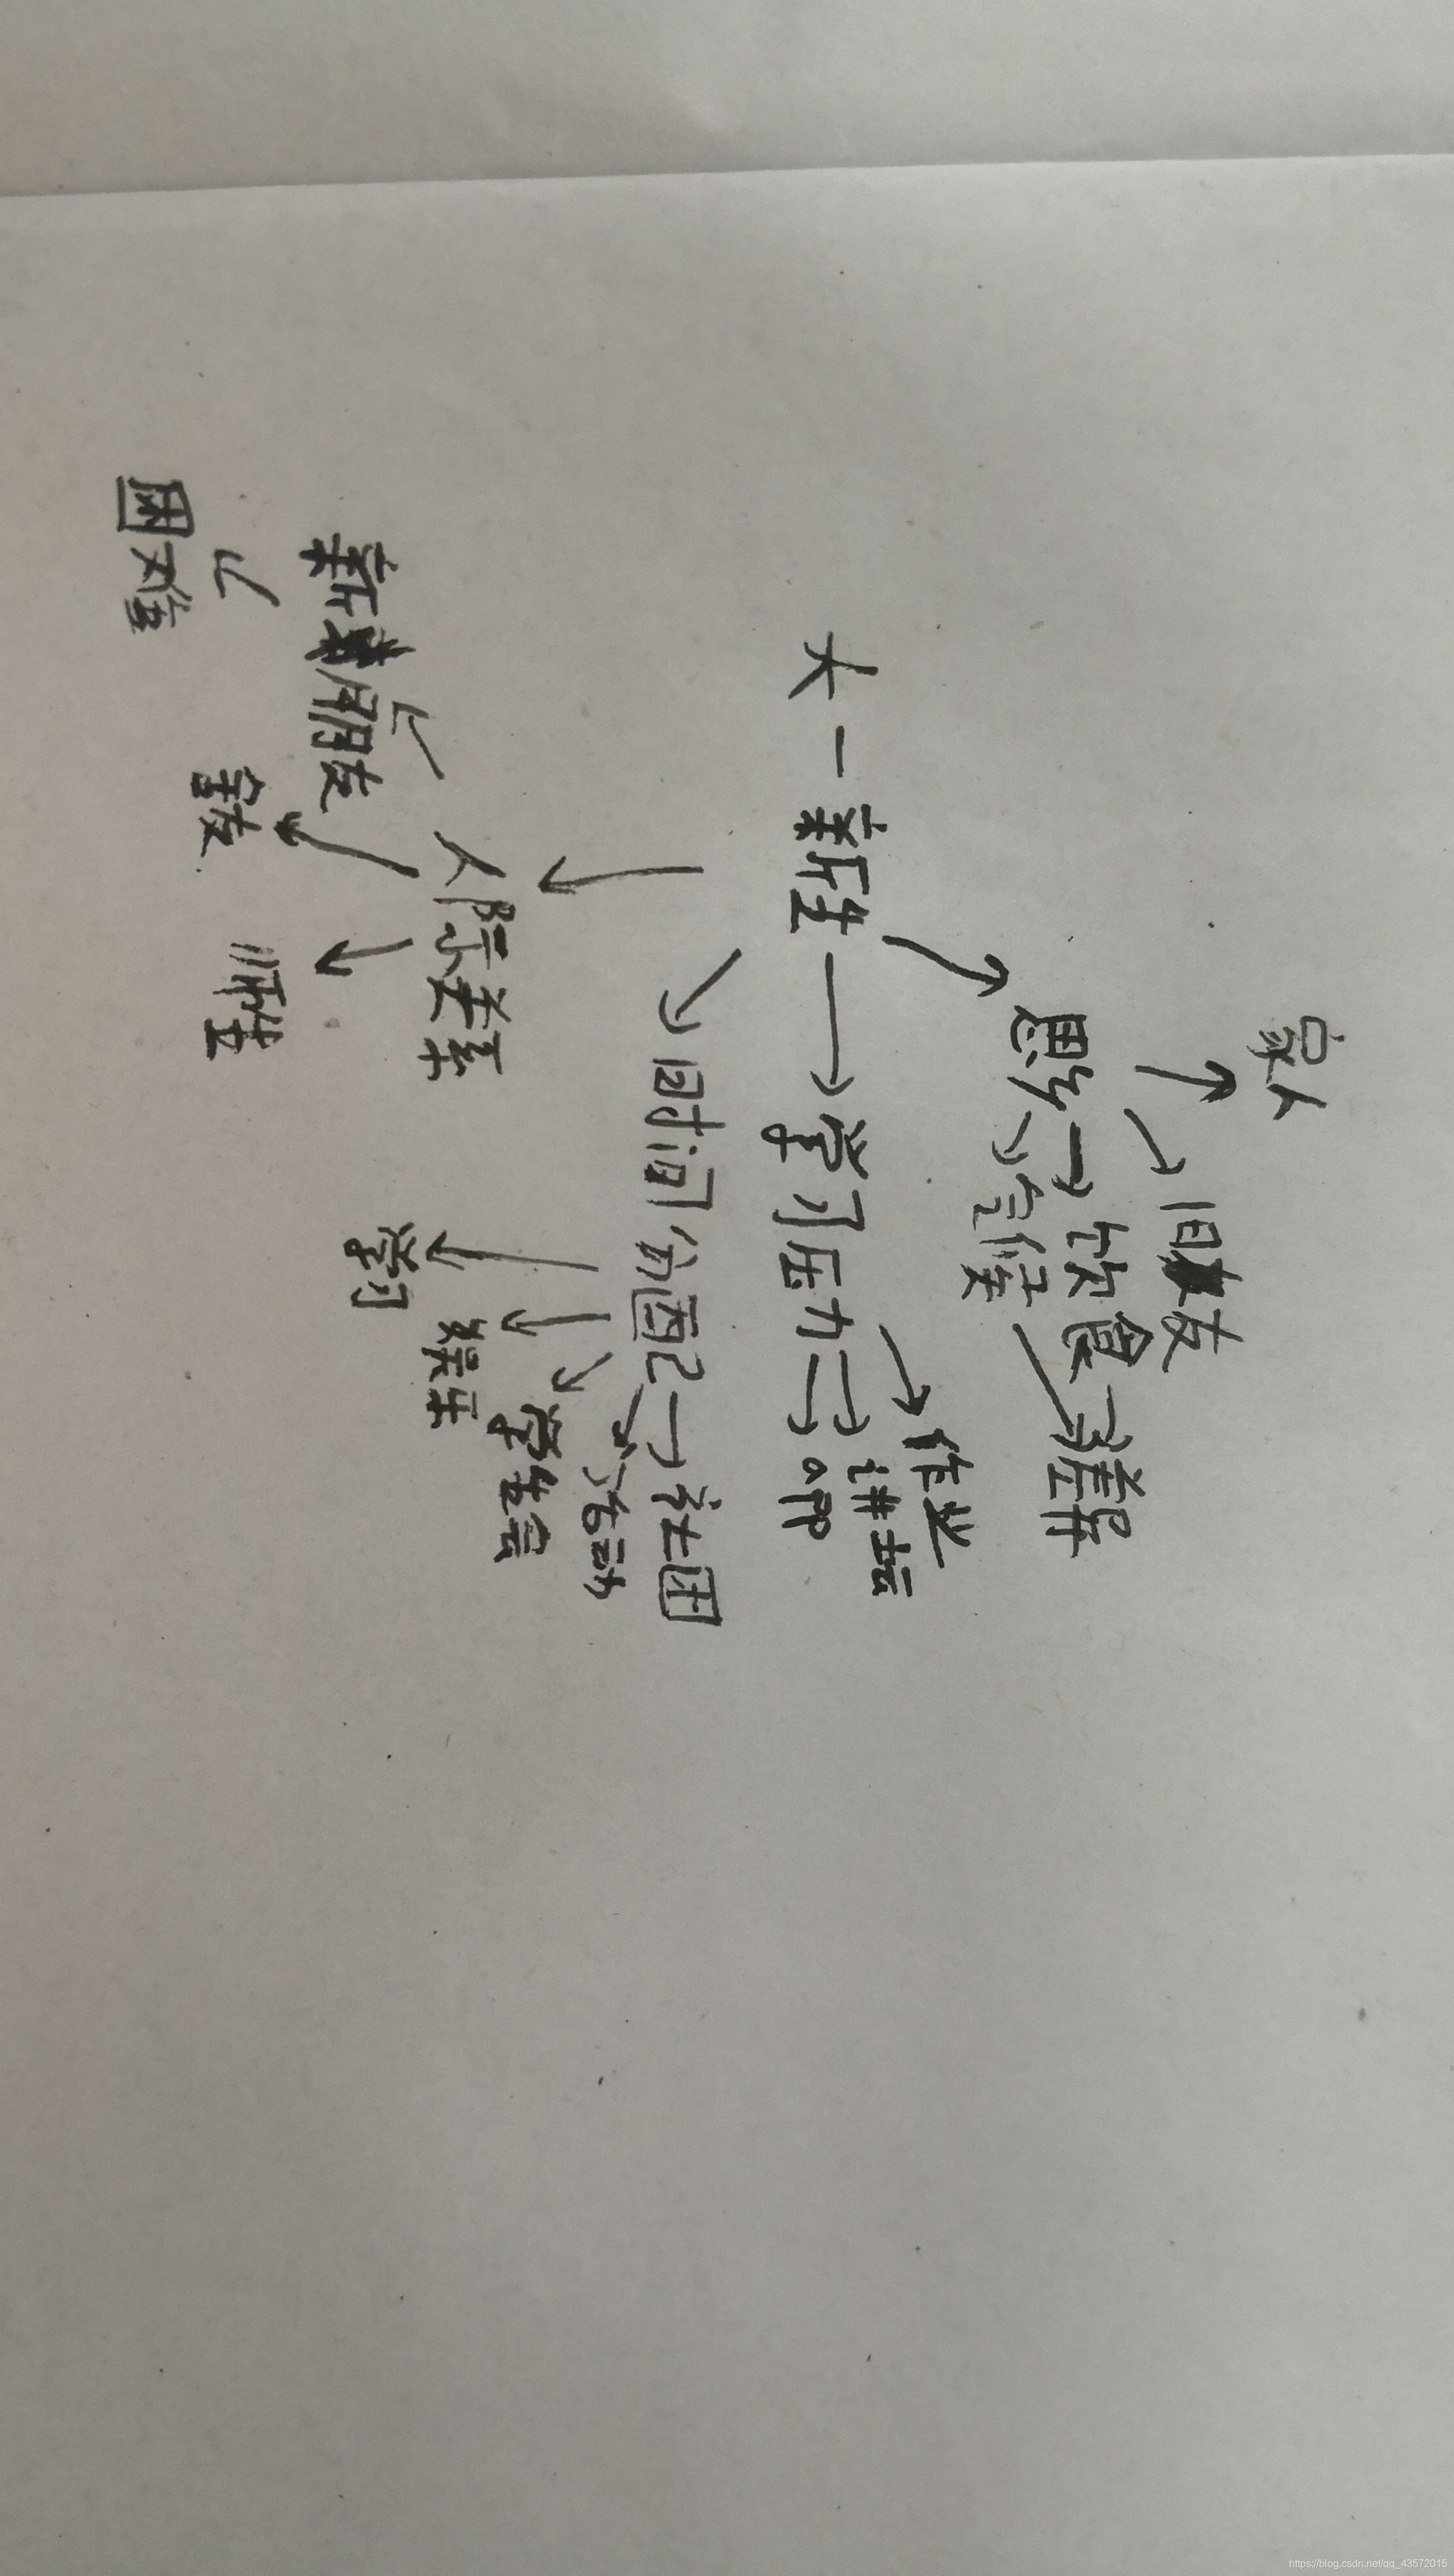 家人
旧友
思乡
饮食
气候
差异
作业
讲坛
大一新生
学习压力
APP
时间分配
社团
活动
学生会
娱乐
学习
人际关系
师生
室友
新朋友
困难
https://blog.csdn.net/qq_43572015